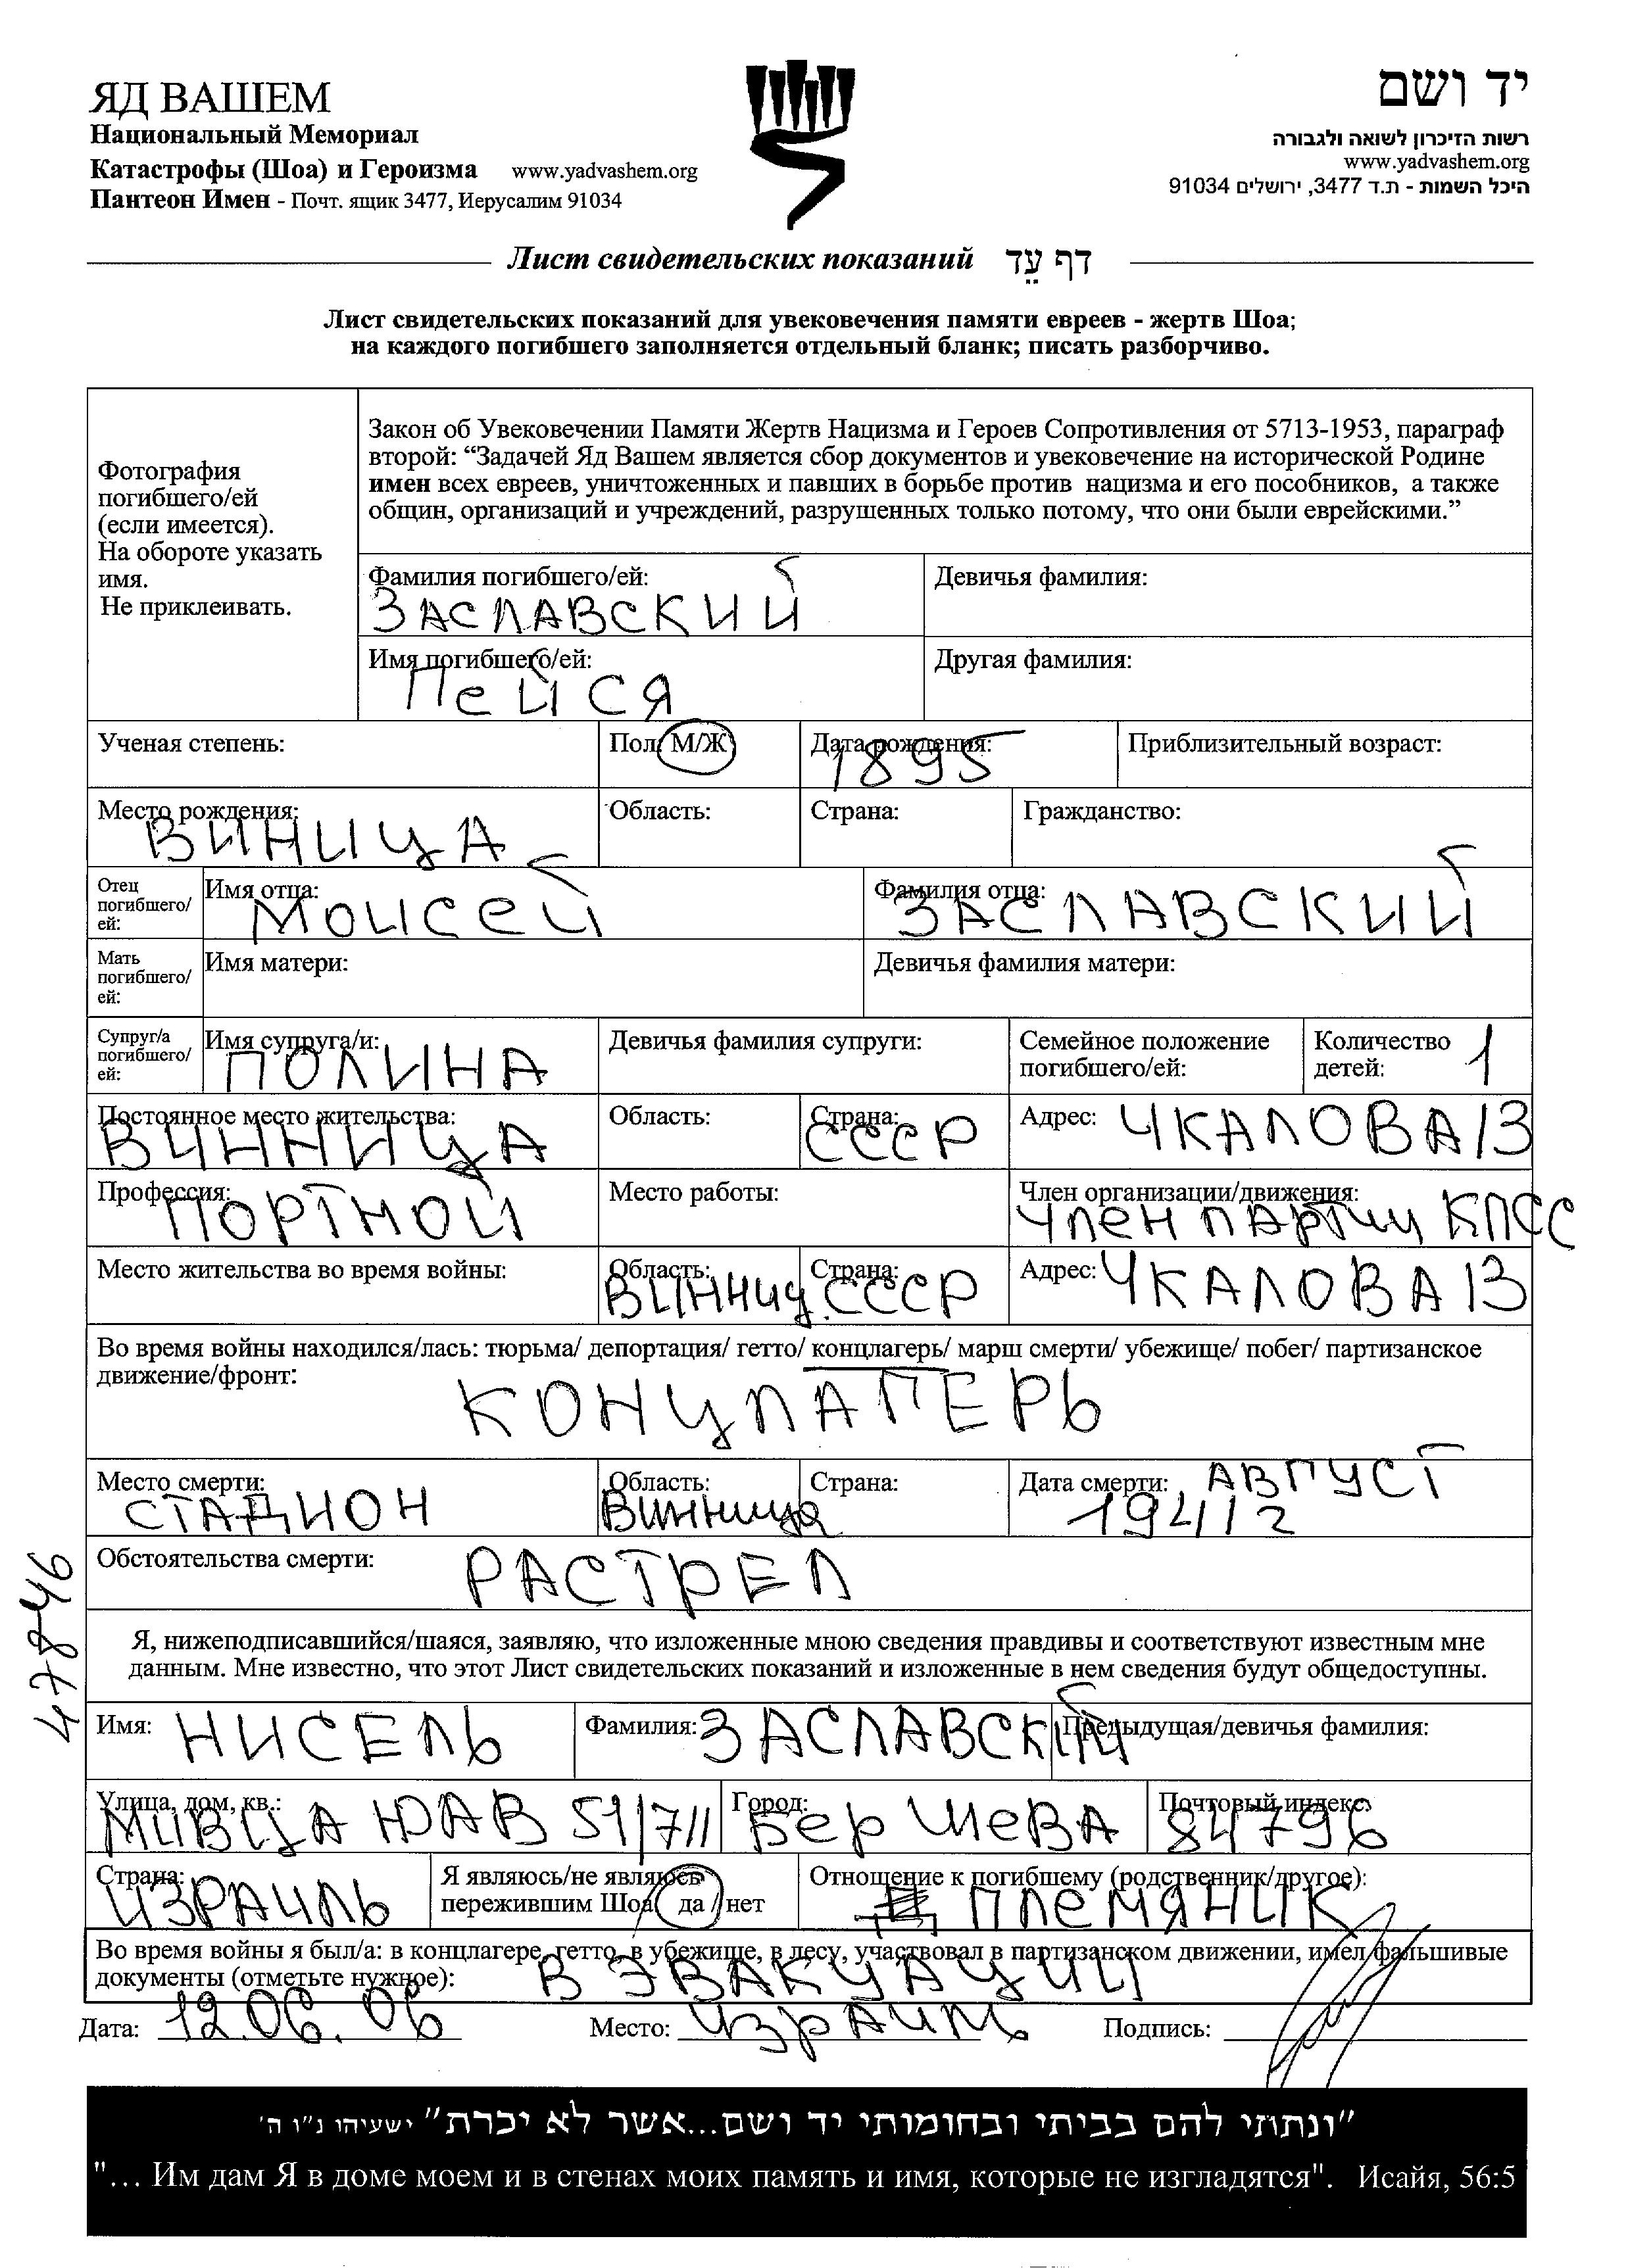 ЯД ВАШЕМ
Национальный Мемориал
Катастрофы (Шоа) и Героизма www.yadvashem.org
Пантеон Имен - Почт. ящик 3477, Иерусалим 91034
יד ושם
רשות הזיכרון לשואה ולגבורה
www.yadvashem.org
היכל השמות - ת.ד 3477, ירושלים 91034
Лист свидетельских показаний דף עֵד
Лист свидетельских показаний для увековечения памяти евреев - жертв Шоа;
на каждого погибшего заполняется отдельный бланк; писать разборчиво.
Фотография
погибшего/ей
(если имеется).
На обороте указать
имя.
Не приклеивать.
Закон об Увековечении Памяти Жертв Нацизма и Героев Сопротивления от 5713-1953, параграф
второй: “Задачей Яд Вашем является сбор документов и увековечение на исторической Родине
имен всех евреев, уничтоженных и павших в борьбе против нацизма и его пособников, а также
общин, организаций и учреждений, разрушенных только потому, что они были еврейскими.”
Фамилия погибшего/ей: Девичья фамилия:
ЗАСЛАВСКИЙ
Имя погибшего/ей: Другая фамилия:
Пейся
Ученая степень: Пол: М/Ж Дата рождения: Приблизительный возраст:
1895
Место рождения: Область: Страна: Гражданство:
ВИНИЦА
Отец
погибшего/
ей:
Имя отца: Фамилия отца:
МОИСЕЙ ЗАСЛАВСКИЙ
Мать
погибшего/
ей:
Имя матери: Девичья фамилия матери:
Супруг/а
погибшего/
ей:
Имя супруга/и: Девичья фамилия супруги: Семейное положение
погибшего/ей: Количество
детей: 1
ПОЛИНА
Постоянное место жительства: Область: Страна: Адрес: ЧКАЛОВА 13
ВИННИЦА СССР
Профессия: Место работы: Член организации/движения:
ПОРТНОЙ Член партии КПСС
Место жительства во время войны: Область: Страна: Адрес: ЧКАЛОВА 13
Винниц. СССР
Во время войны находился/лась: тюрьма/ депортация/ гетто/ концлагерь/ марш смерти/ убежище/ побег/ партизанское
движение/фронт:
КОНЦЛАГЕРЬ
Место смерти: Область: Страна: Дата смерти: АВГУСТ
СТАДИОН Винница 1941 г
Обстоятельства смерти: РАСТРЕЛ
47846
Я, нижеподписавшийся/шаяся, заявляю, что изложенные мною сведения правдивы и соответствуют известным мне
данным. Мне известно, что этот Лист свидетельских показаний и изложенные в нем сведения будут общедоступны.
Имя: НИСЕЛЬ Фамилия: ЗАСЛАВСКИЙ Предыдущая/девичья фамилия:
Улица, дом, кв.: Город: Почтовый индекс:
МИВЦА ЮАВ 51/7/1 Бер Шева 84796
Страна: Я являюсь/не являюсь
пережившим Шоа: да / нет Отношение к погибшему (родственник/другое):
ИЗРАИЛЬ ПЛЕМЯНИК
Во время войны я был/а: в концлагере, гетто, в убежище, в лесу, участвовал в партизанском движении, имел фальшивые
документы (отметьте нужное): В ЭВАКУАЦИИ
Дата: 12.06.06 Место: Израиль Подпись:
"ונתתי להם בביתי ובחומותי יד ושם...אשר לא יכרת" ישעיהו נ"ו ה'
"... Им дам Я в доме моем и в стенах моих память и имя, которые не изгладятся". Исайя, 56:5